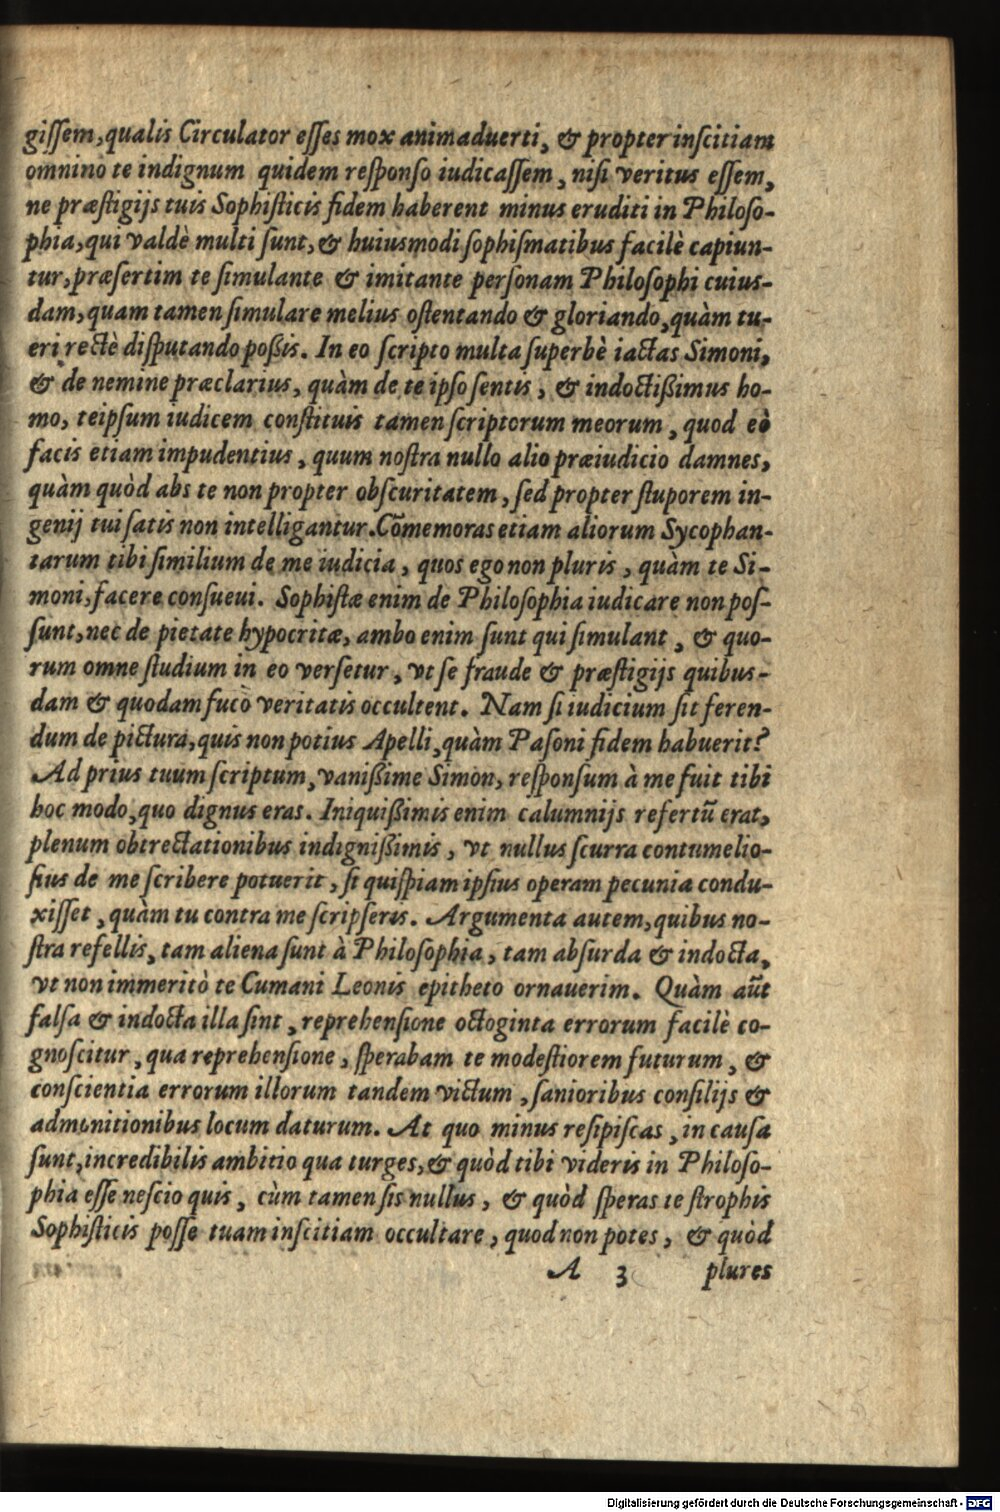 gissem, qualis Circulator esses mox animaduerti, & propter inscitiam
omnino te indignum quidem responso iudicassem, nisi veritus essem,
ne præstigijs tuis Sophisticis fidem haberent minus eruditi in Philoso-
phia, qui valdè multi sunt, & huiusmodi sophismatibus facilè capiun-
tur, præsertim te simulante & imitante personam Philosophi cuius-
dam, quam tamen simulare melius ostentando & gloriando, quàm tu-
eri rectè disputando poßis. In eo scripto multa superbè iactas Simoni,
& de nemine præclarius, quàm de te ipso sentis, & indoctißimus ho-
mo, teipsum iudicem constituis tamen scriptorum meorum, quod eò
facis etiam impudentius, quum nostra nullo alio præiudicio damnes,
quàm quòd abs te non propter obscuritatem, sed propter stuporem in-
genij tui satis non intelligantur. Cōmemoras etiam aliorum Sycophan-
tarum tibi similium de me iudicia, quos ego non pluris, quàm te Si-
moni, facere consueui. Sophistæ enim de Philosophia iudicare non pos-
sunt, nec de pietate hypocritæ, ambo enim sunt qui simulant, & quo-
rum omne studium in eo versetur, vt se fraude & præstigijs quibus-
dam & quodam fuco veritatis occultent. Nam si iudicium sit feren-
dum de pictura, quis non potius Apelli, quàm Pasoni fidem habuerit?
Ad prius tuum scriptum, vanißime Simon, responsum à me fuit tibi
hoc modo, quo dignus eras. Iniquißimis enim calumnijs refertū erat,
plenum obtrectationibus indignißimis, vt nullus scurra contumelio-
sius de me scribere potuerit, si quispiam ipsius operam pecunia condu-
xisset, quàm tu contra me scripseris. Argumenta autem, quibus no-
stra refellis, tam aliena sunt à Philosophia, tam absurda & indocta,
vt non immeritò te Cumani Leonis epitheto ornauerim. Quàm aūt
falsa & indocta illa sint, reprehensione octoginta errorum facilè co-
gnoscitur, qua reprehensione, sperabam te modestiorem futurum, &
conscientia errorum illorum tandem victum, sanioribus consilijs &
admonitionibus locum daturum. At quo minus resipiscas, in causa
sunt, incredibilis ambitio qua turges, & quòd tibi videris in Philoso-
phia esse nescio quis, cùm tamen sis nullus, & quòd speras te strophis
Sophisticis posse tuam inscitiam occultare, quod non potes, & quòd
A 3 plures
Digitalisierung gefördert durch die Deutsche Forschungsgemeinschaft - DFG